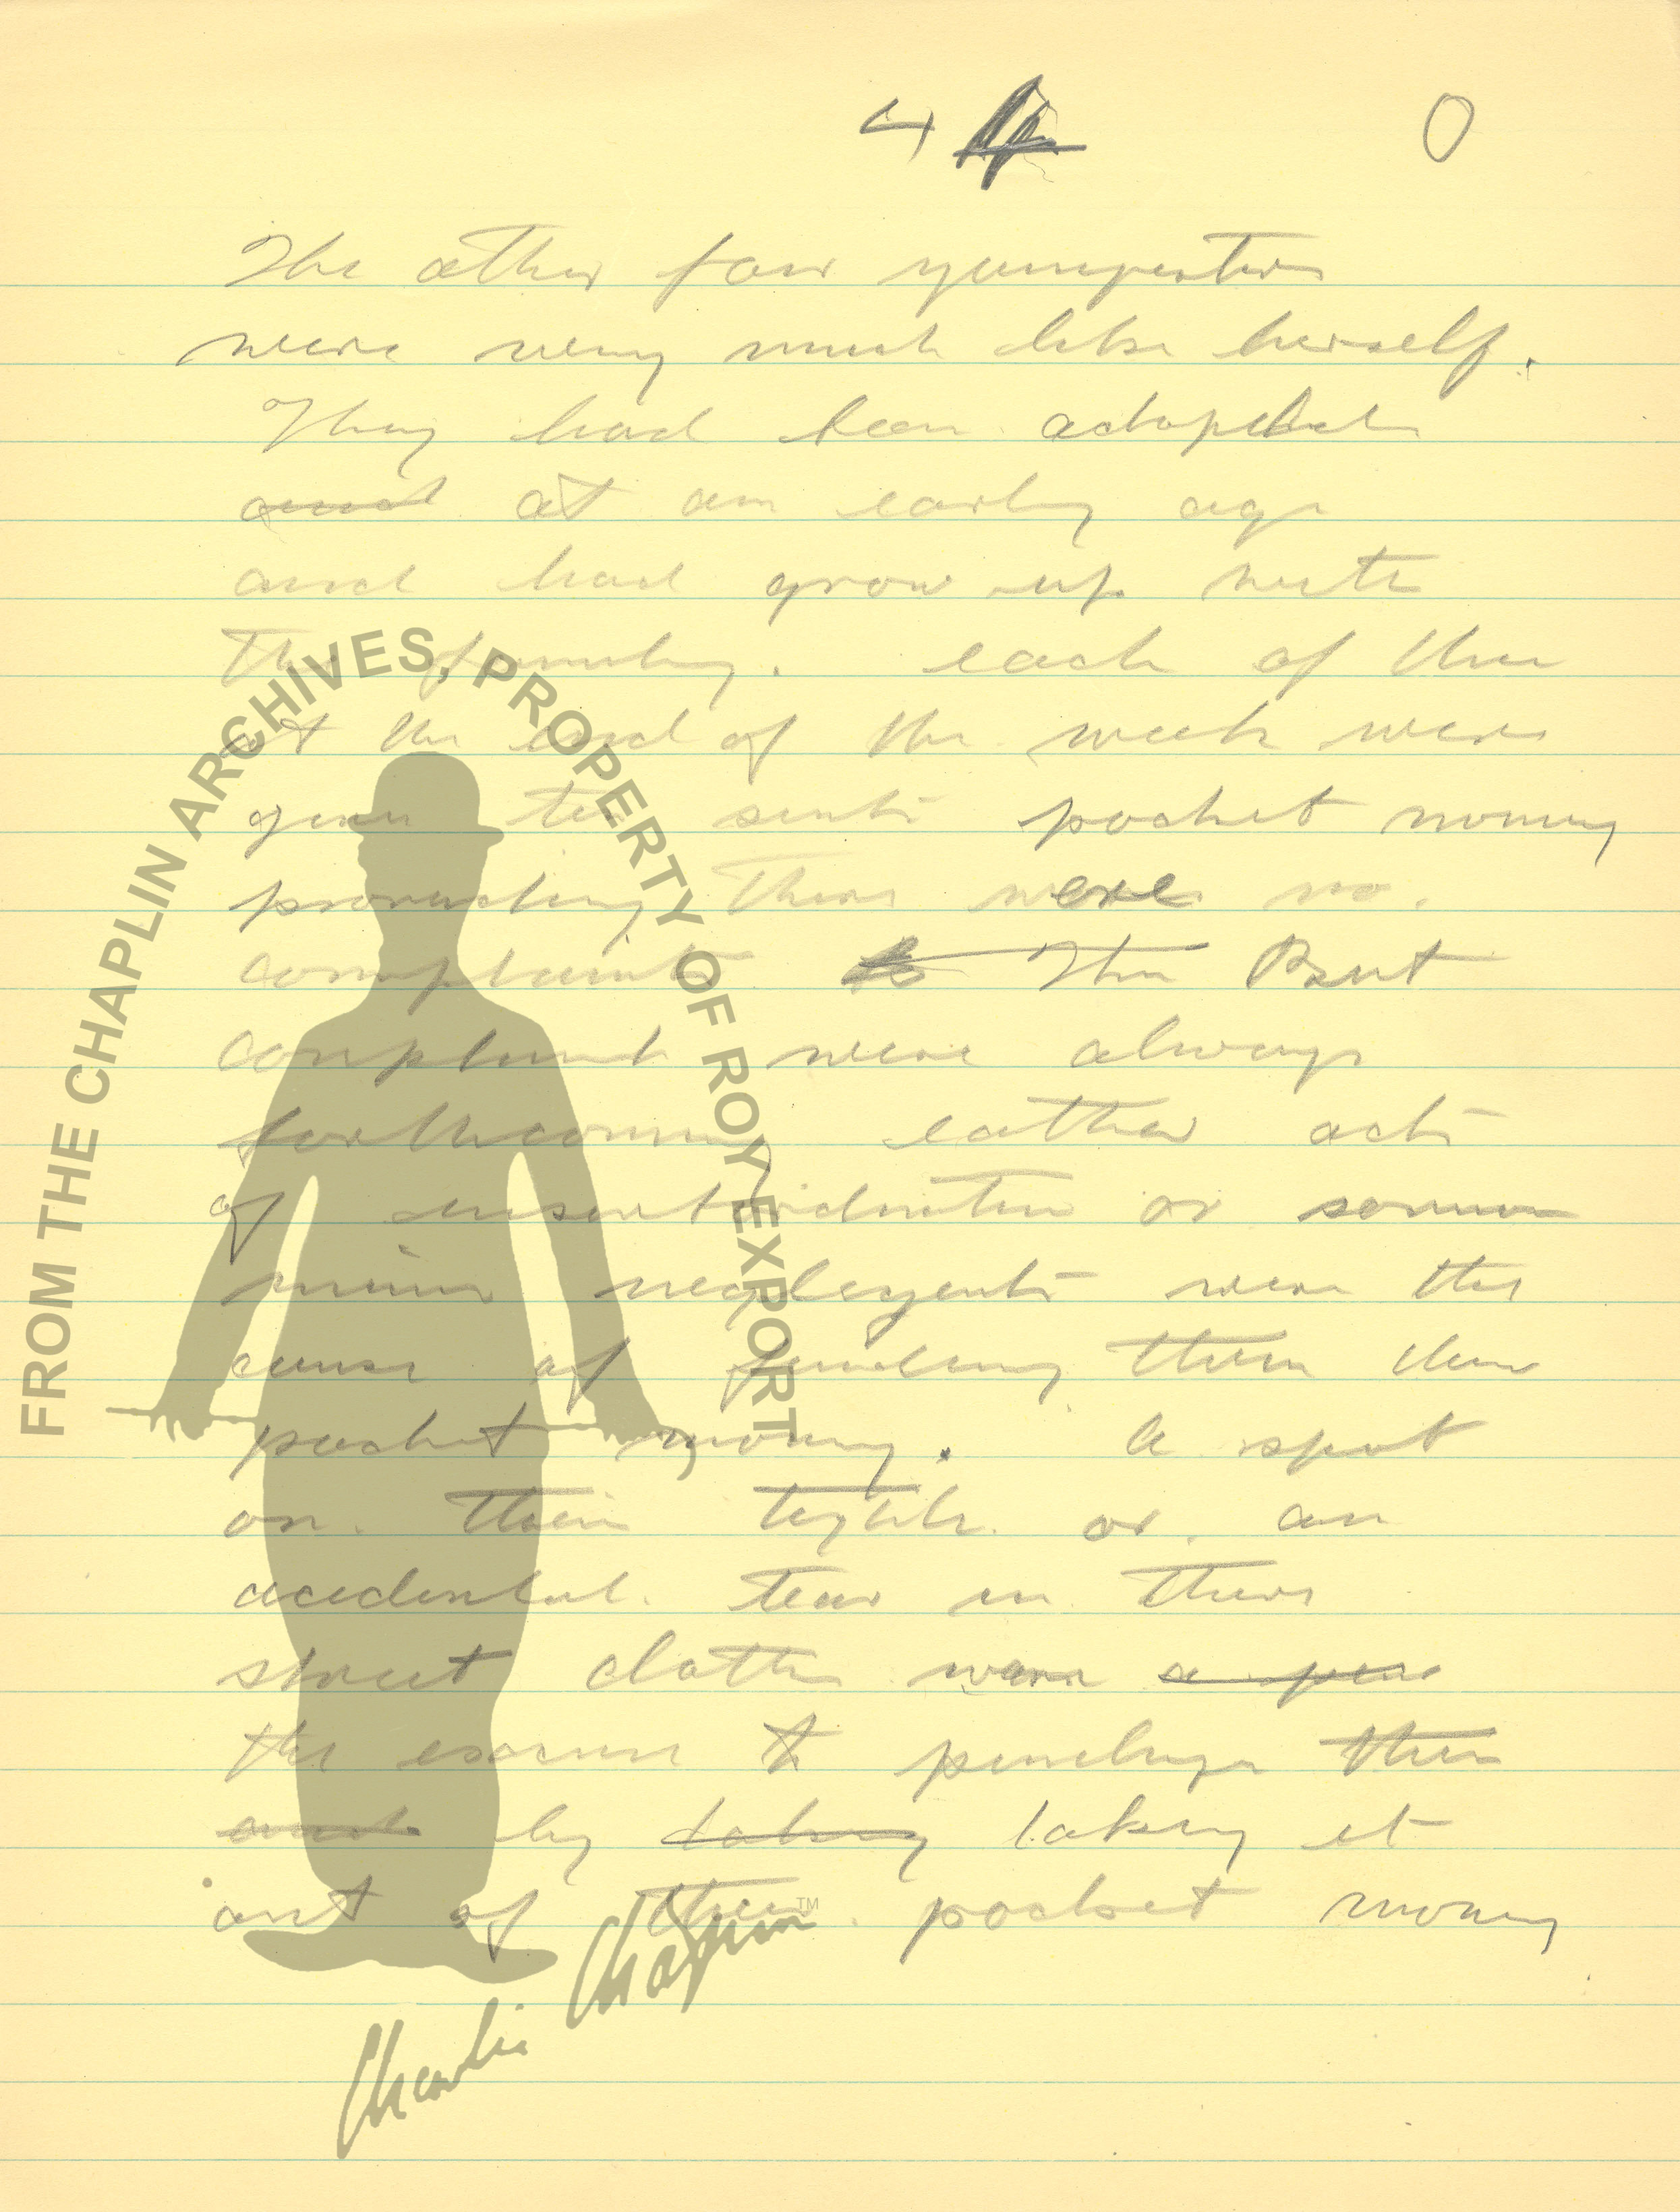 4 0
The other four youngsters
were very much like herself.
They had been adopted
and at an early age
and had grow up with
the family. each of them
at the end of the week were
given ten sents pocket money
providing there were no
complaints The But
complaints were always
forthcoming eather acts
of insubordination or some
minor neglegents were the
cause of them their
pocket money. A spot
on their tights or an
accidental tear in their
street clothes were a
the excuse to penelize them
and by taking taking it
out of their pocket money
FROM THE CHAPLIN ARCHIVES, PROPERTY OF ROY EXPORT
Charlie Chaplin ™